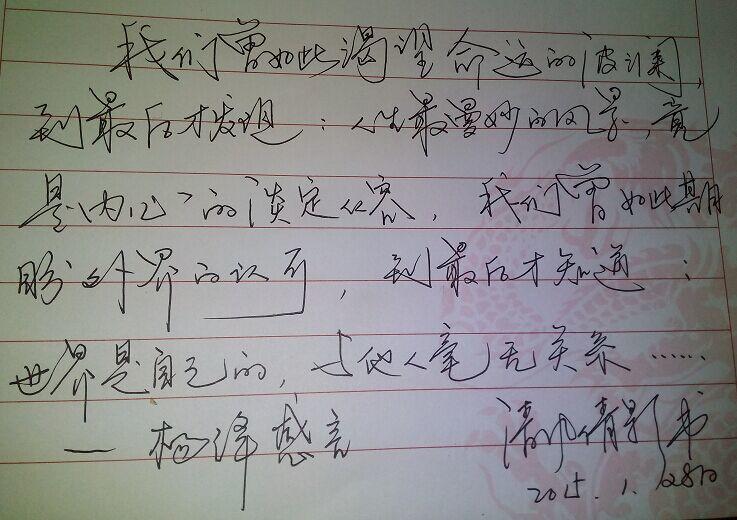 我们曾如此渴望命运的波澜,
到最后才发现：人生最曼妙的风景,竟
是内心的淡定从容,我们曾如此期
盼外界的认可,到最后才知道：
世界是自己的,与他人毫无关系……
— 杨绛感言
清帅倩影书
2015.1.28日